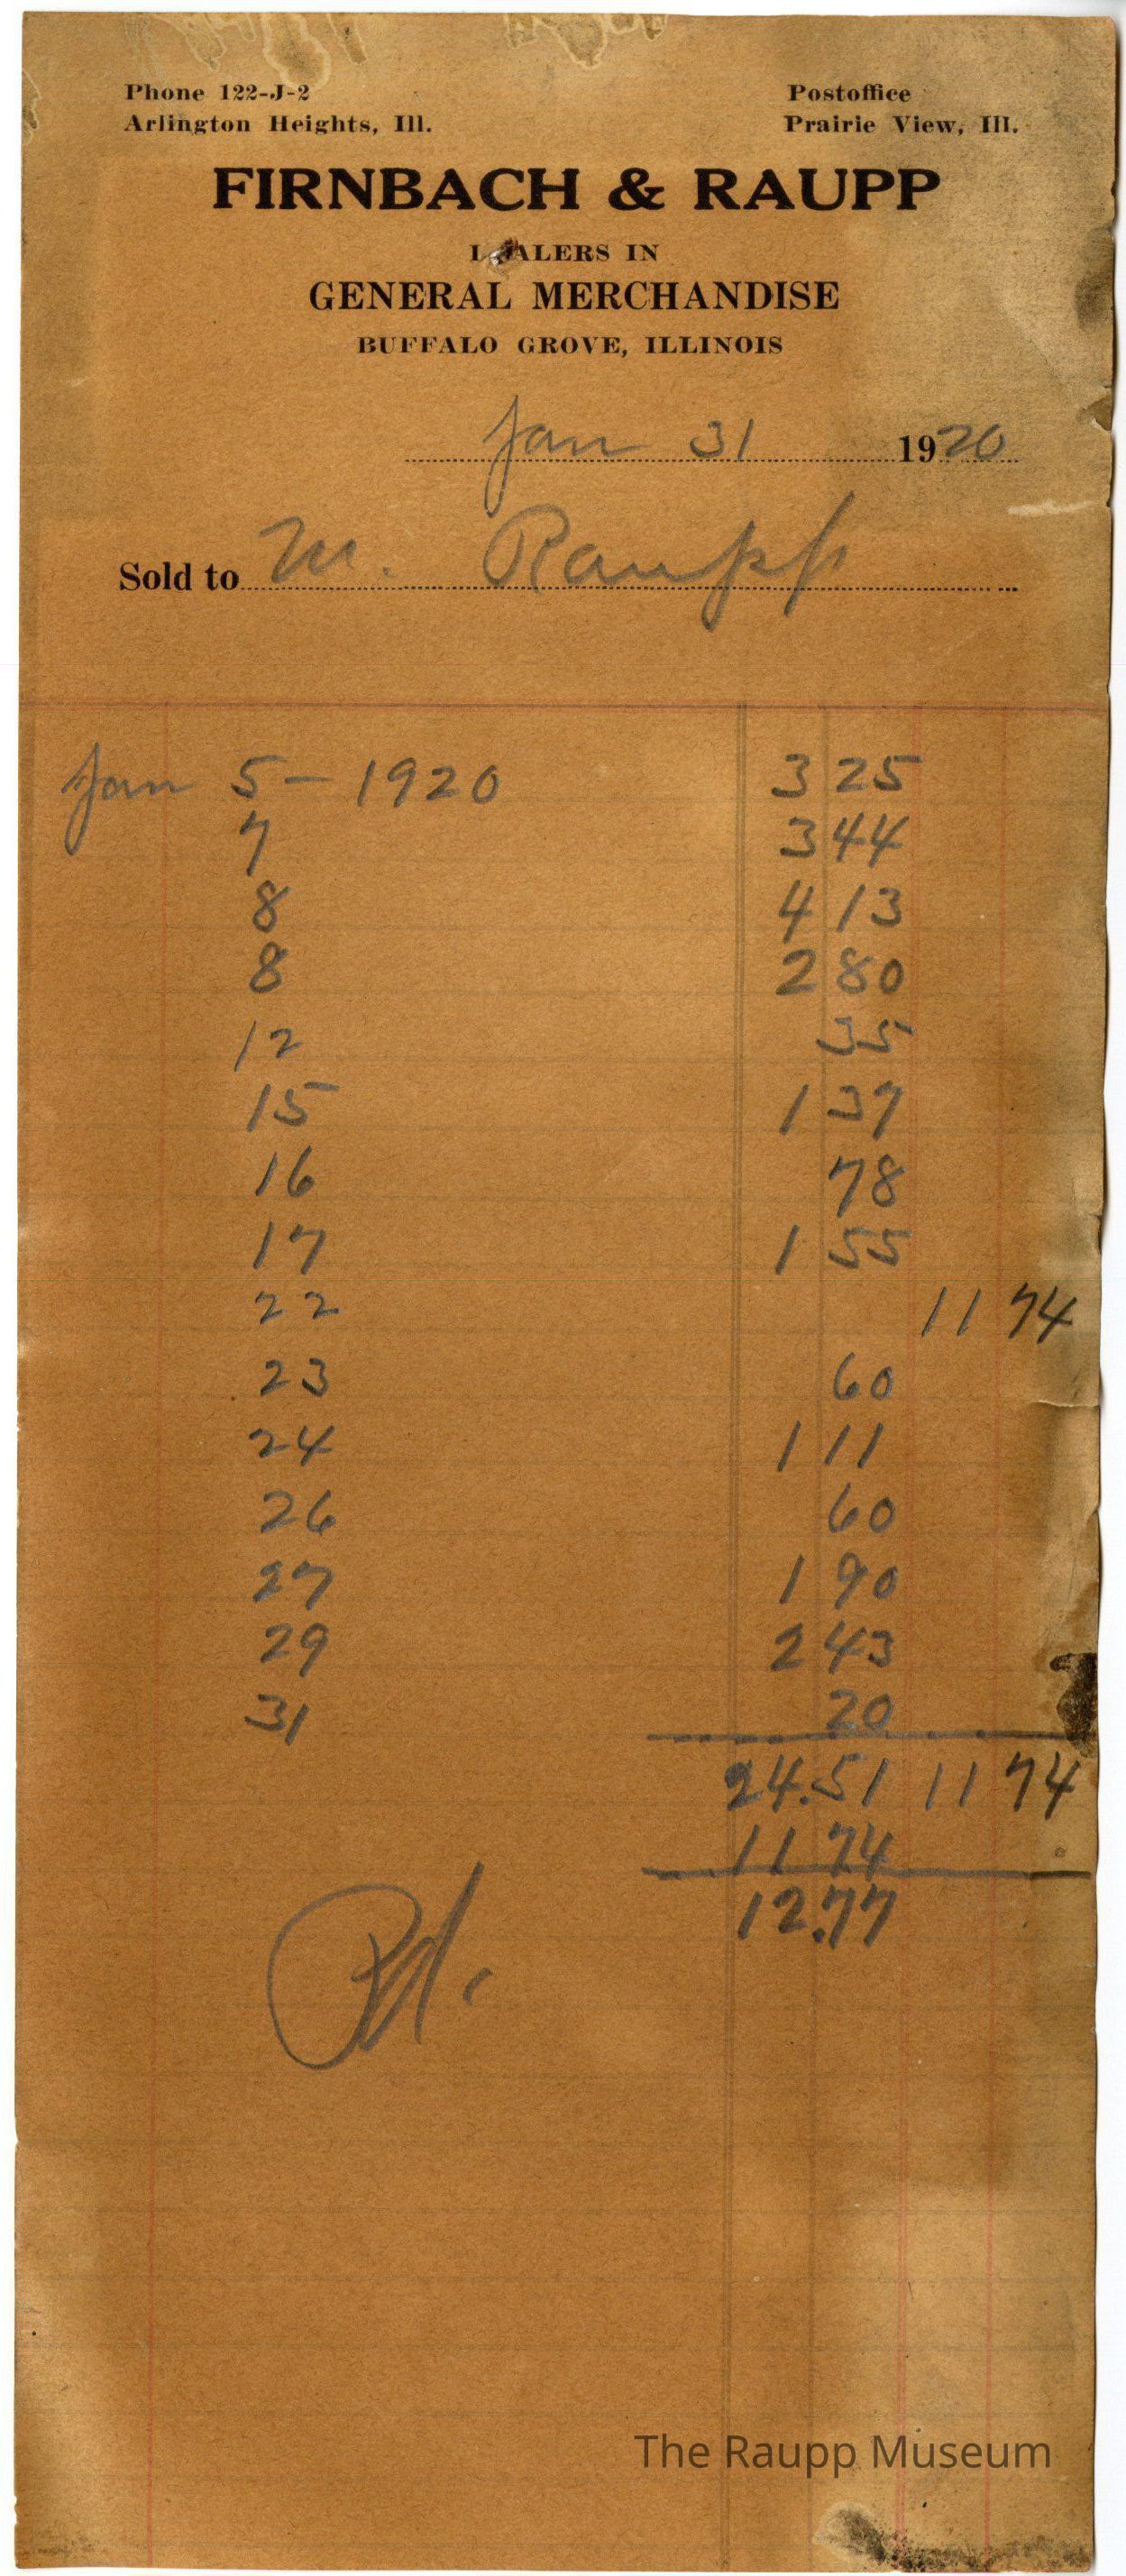 Phone 122-J-2 Postoffice
Arlington Heights, Ill. Prairie View, Ill.
FIRNBACH & RAUPP
DEALERS IN
GENERAL MERCHANDISE
BUFFALO GROVE, ILLINOIS
Jan 31 1920
Sold to M. Raupp
Jan 5 - 1920 3 25
7 3 44
8 4 13
8 2 80
12 35
15 1 37
16 78
17 1 55
22 11 74
23 60
24 1 11
26 60
27 1 90
29 2 43
31 20
24.51 11 74
11 74
12.77
Pd.
The Raupp Museum